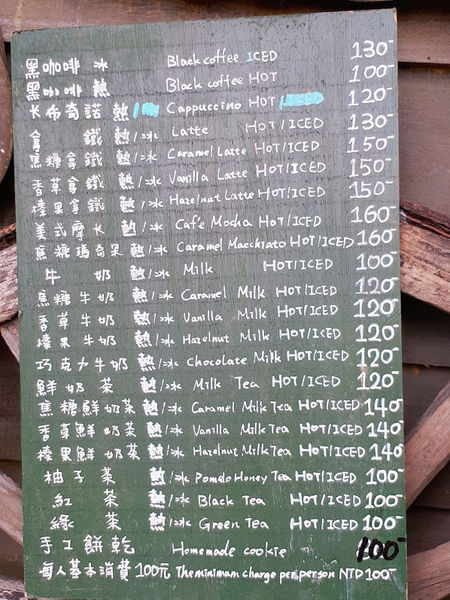 黑咖啡 冰 Black coffee ICED 130-
黑咖啡 熱 Black coffee HOT 100-
卡布奇諾 熱/ Cappuccino HOT 120-
拿鐵 熱/冰 Latte HOT/ICED 130-
焦糖拿鐵 熱/冰 Caramel Latte HOT/ICED 150-
香草拿鐵 熱/冰 Vanilla Latte HOT/ICED 150-
榛果拿鐵 熱/冰 Hazelnut Latte HOT/ICED 150-
美式摩卡 熱/冰 Cafe Mocha HOT/ICED 160-
焦糖瑪奇朵 熱/冰 Caramel Macchiato HOT/ICED 160-
牛奶 熱/冰 Milk HOT/ICED 100-
焦糖牛奶 熱/冰 Caramel Milk HOT/ICED 120-
香草牛奶 熱/冰 Vanilla Milk HOT/ICED 120-
榛果牛奶 熱/冰 Hazelnut Milk HOT/ICED 120-
巧克力牛奶 熱/冰 Chocolate Milk HOT/ICED 120-
鮮奶茶 熱/冰 Milk Tea HOT/ICED 120-
焦糖鮮奶茶 熱/冰 Caramel Milk Tea HOT/ICED 140-
香草鮮奶茶 熱/冰 Vanilla Milk Tea HOT/ICED 140-
榛果鮮奶茶 熱/冰 Hazelnut Milk Tea HOT/ICED 140-
柚子茶 熱/冰 Pomelo Honey Tea HOT/ICED 100-
紅茶 熱/冰 Black Tea HOT/ICED 100-
綠茶 熱/冰 Green Tea HOT/ICED 100-
手工餅乾 Homemade cookie 100-
每人基本消費100元 The minimum charge per person NTD 100-